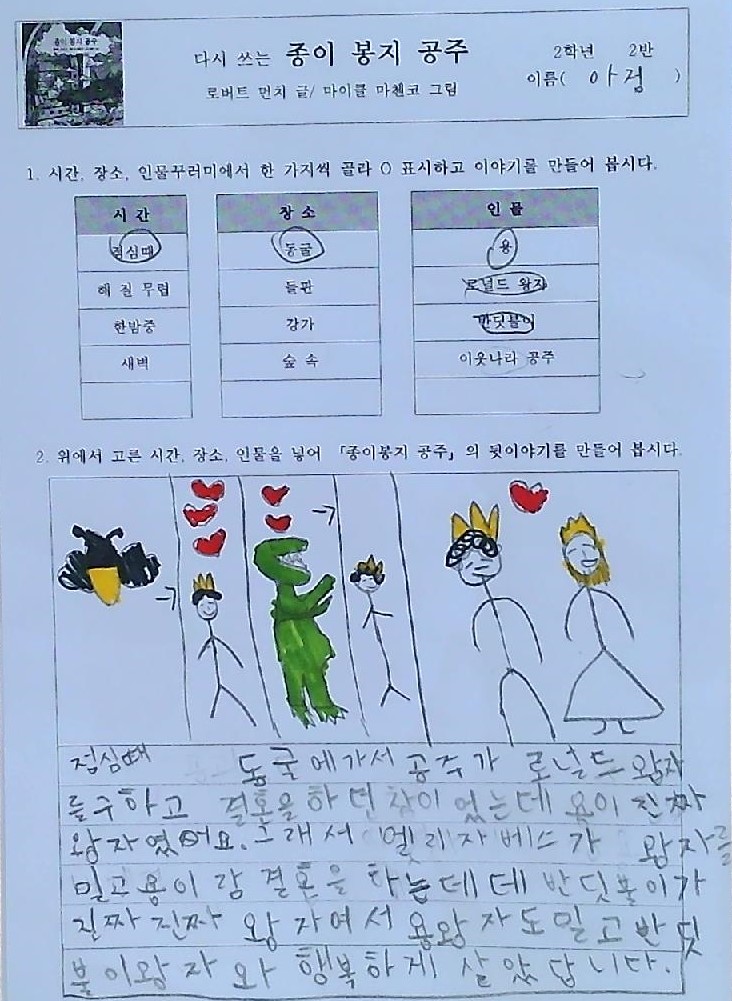 종이 봉지 공주
다시 쓰는 종이 봉지 공주
2학년 2반
로버트 먼치 글/ 마이클 마첸코 그림
이름( 아정 )
1. 시간, 장소, 인물꾸러미에서 한 가지씩 골라 O 표시하고 이야기를 만들어 봅시다.
시 간
점심때
해 질 무렵
한밤중
새벽
장 소
동굴
들판
강가
숲 속
인 물
용
로널드 왕자
반딧불이
이웃나라 공주
2. 위에서 고른 시간, 장소, 인물을 넣어 「종이봉지 공주」의 뒷이야기를 만들어 봅시다.
점심때 동굴에가서 공주가 로널드 왕자
를구하고 결혼을 하던참이 었는데 용이 진짜
왕자였어요. 그래서 엘리자베스가 왕자를
밀고용이 랑 결혼을 하는데데 반딧불이가
진짜 진짜 왕 자여서 용왕 자도 밀고 반딧
불이왕 자 와 행복하게 살 았 답니다.